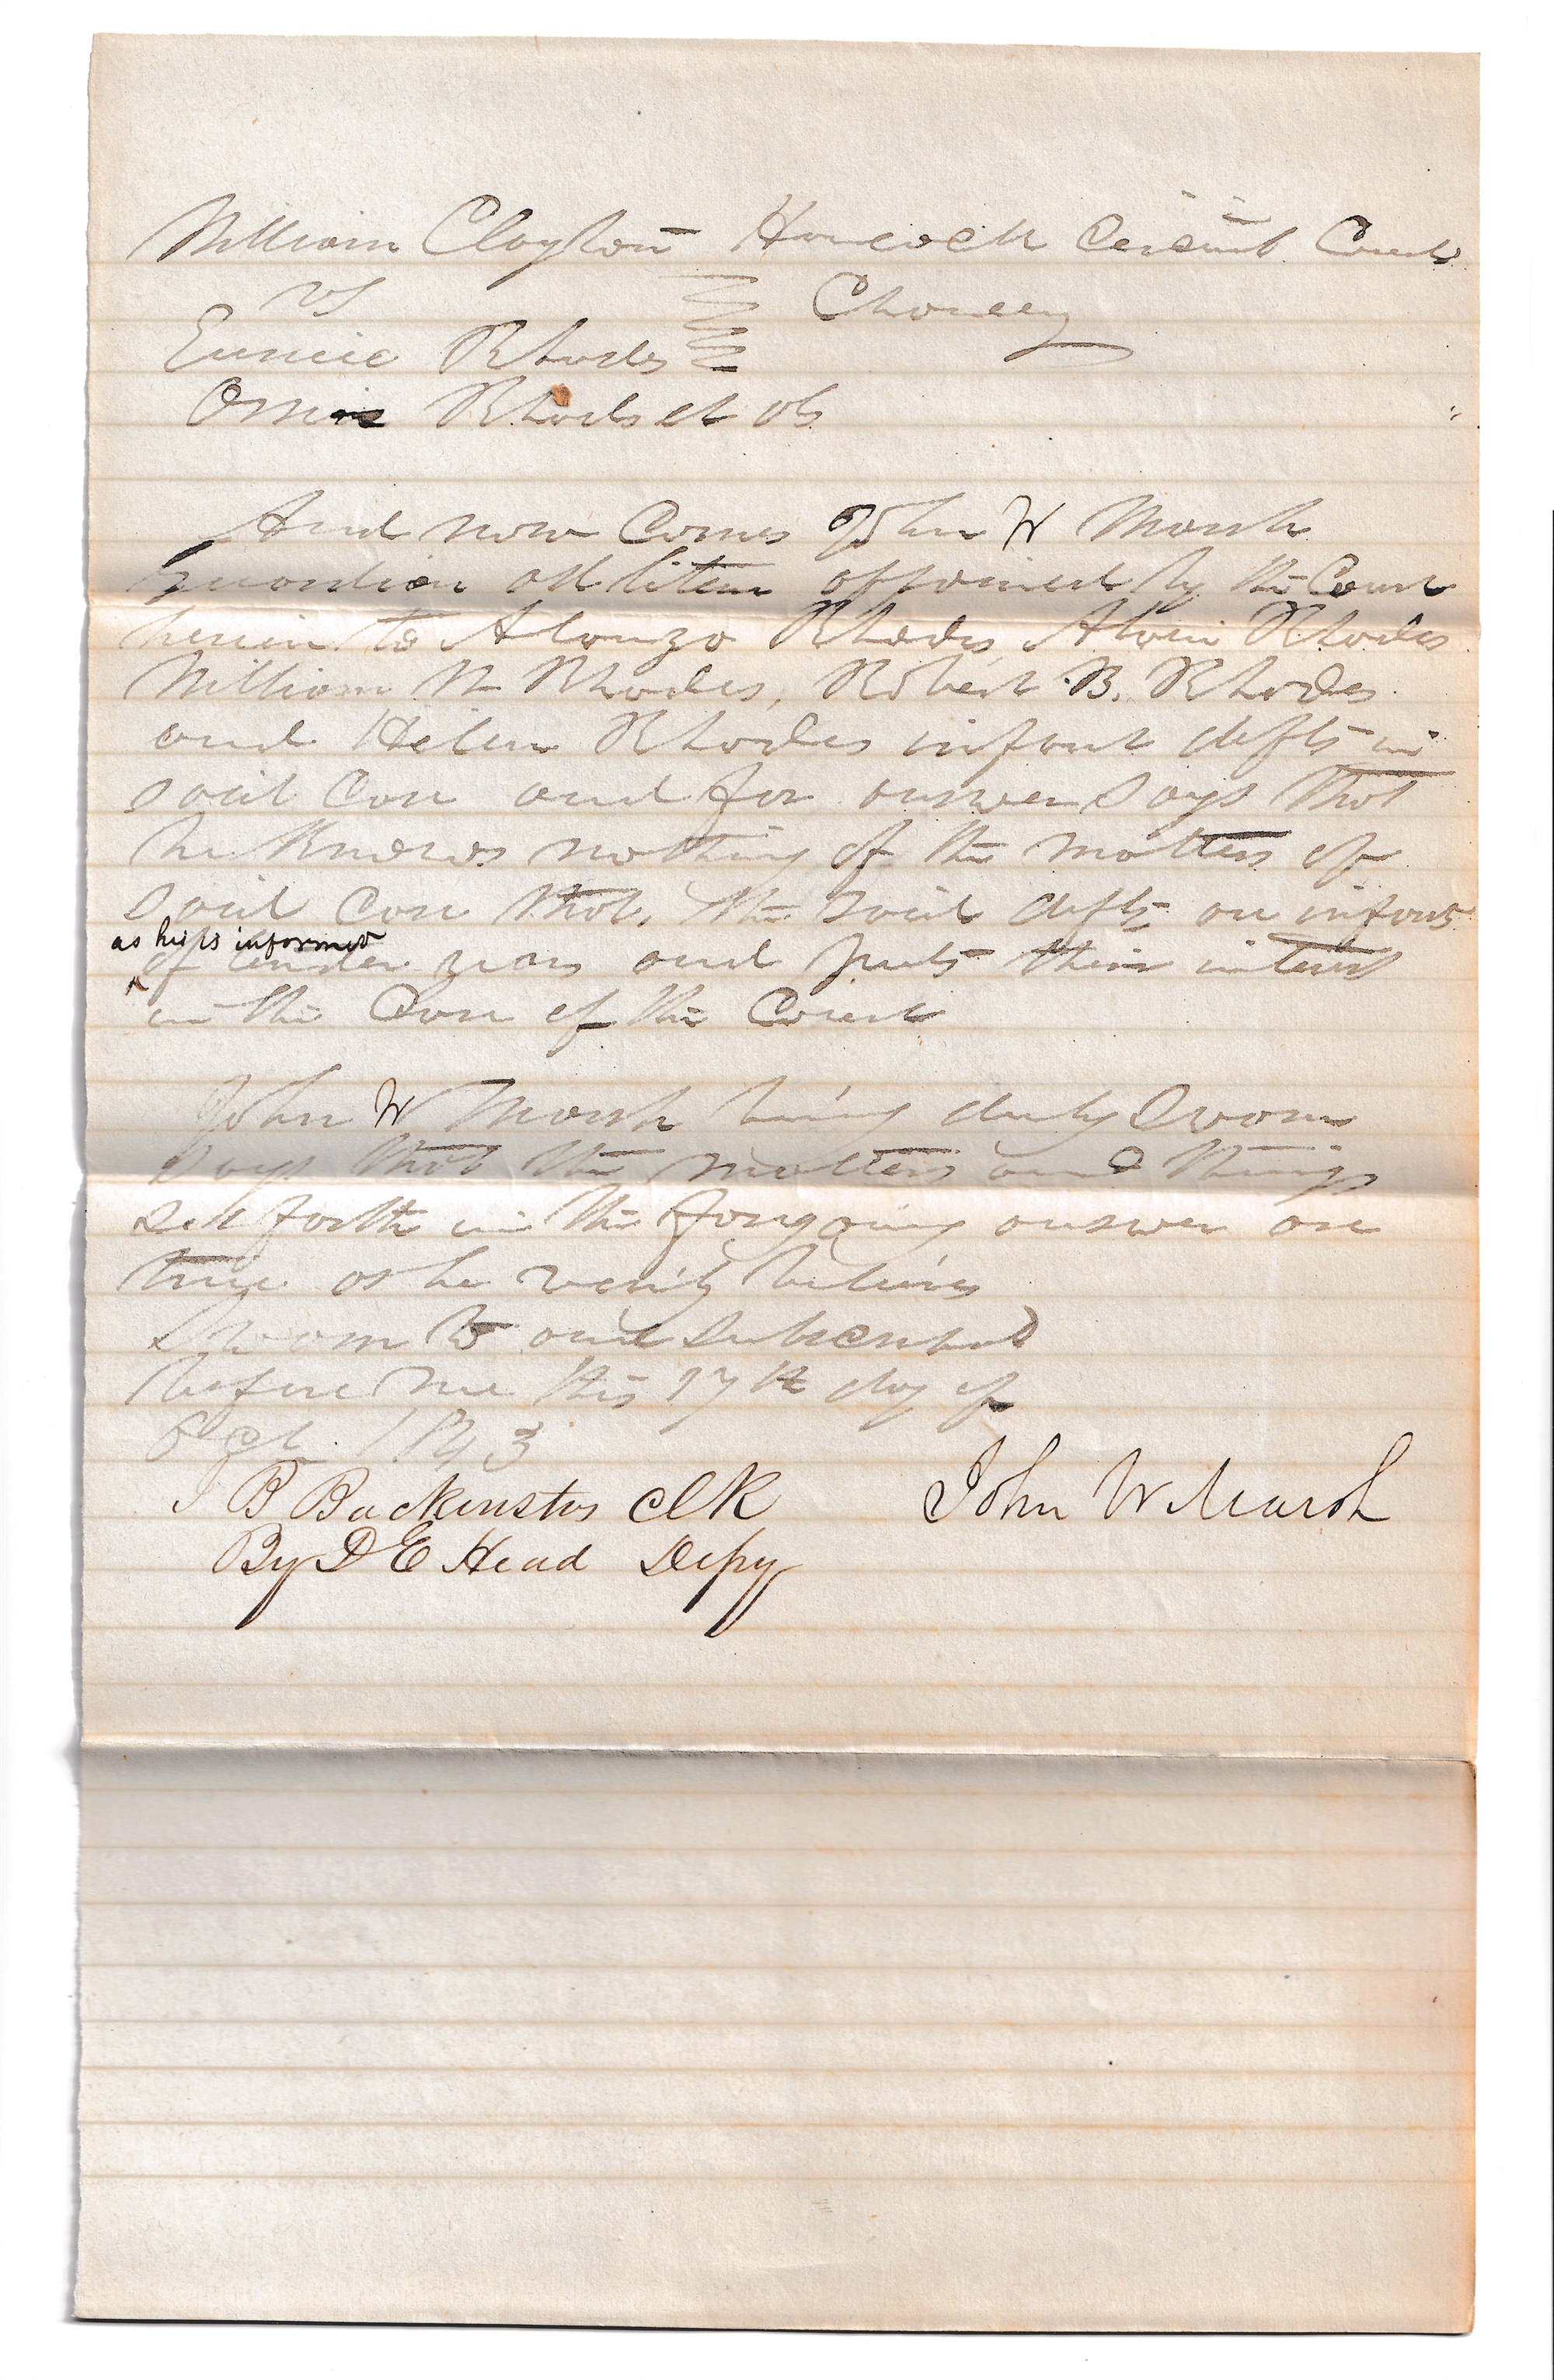 William Clayton Hancock Circuit Court
vs Chancery
Eunice Rhodes
Rhodes et als
And now Comes John W Marsh
guardian ad litem appointed by the Court
herein to Alonzo Rhodes, Alvin Rhodes
William N Rhodes, Robert B. Rhodes
and Helen Rhodes infant defts in
said Case and for answer Says that
he Knows nothing of the matters of
said Case that, the said defts are infants
as he is informed
of tender years and puts their interest
in the Care of the Court
John W Marsh being duly Sworn
Says that the matters and things
set forth in the foregoing answer are
true as he verily believes
Sworn to and Subscribed
before me this 17th day of
Oct. 1843
J B Backenstos Clk John W Marsh
By D E Head Depy